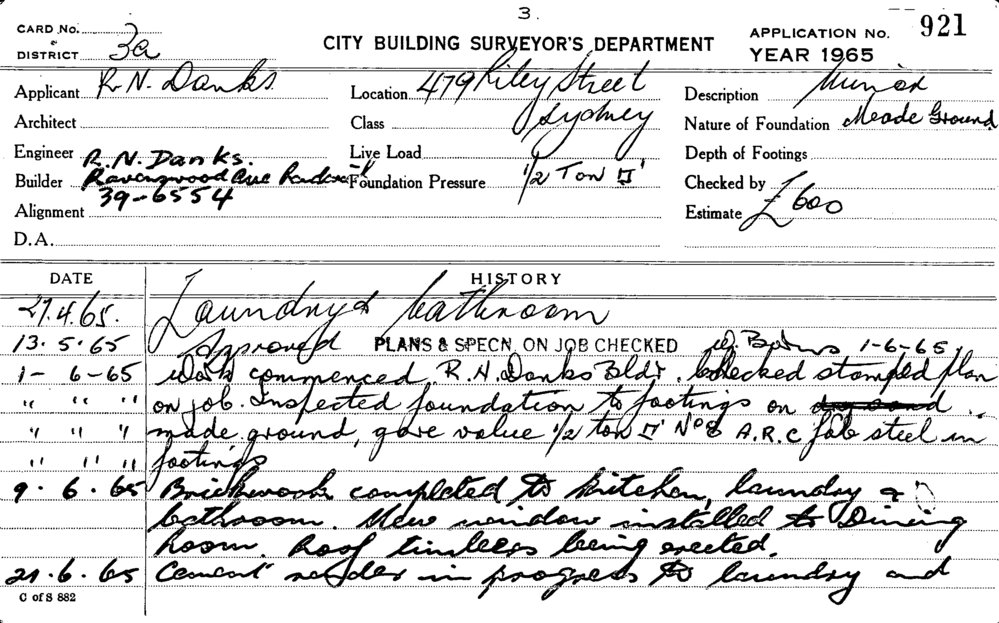 3.
CARD NO.
& DISTRICT 3a
CITY BUILDING SURVEYOR'S DEPARTMENT
APPLICATION NO. 921
YEAR 1965
Applicant R. N. Danks.
Location 479 Riley Street
Sydney
Description Minor
Architect
Class
Nature of Foundation Meade Ground
Engineer R. N. Danks.
Live Load
Depth of Footings
Builder Ravenswood Ave
39-6554
Foundation Pressure 1/2 TON □'
Checked by
Alignment
Estimate £600
D.A.
DATE HISTORY
27.4.65. Laundry & bathroom
13.5.65 Approved PLANS & SPECN. ON JOB CHECKED 1-6-65
1-6-65 Work commenced. R. N. Danks Bldr. Checked stamped plan
" " " on job. Inspected foundation to footings on
" " " made ground, gave value 1/2 ton □' No 8 A.R.C fab steel in
" " " footings
9.6.65 Brickwork completed to kitchen, laundry &
bathroom. New window installed to Dining
Room. Roof timbers being erected.
21.6.65 Cement render in progress to laundry and
C of S 882